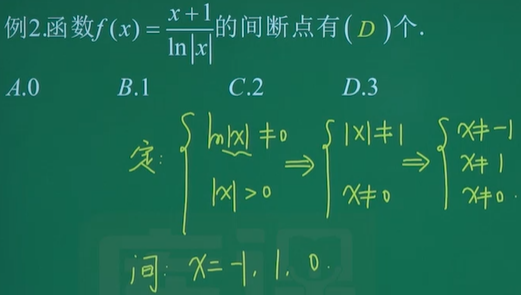 例2.函数f(x)=\frac{x+1}{\ln|x|}的间断点有( D )个.
A.0 B.1 C.2 D.3
定: { ln|x|≠0 |x|>0 ⇒ { |x|≠1 x≠0 ⇒ { x≠-1 x≠1 x≠0.
间: x=-1, 1, 0.